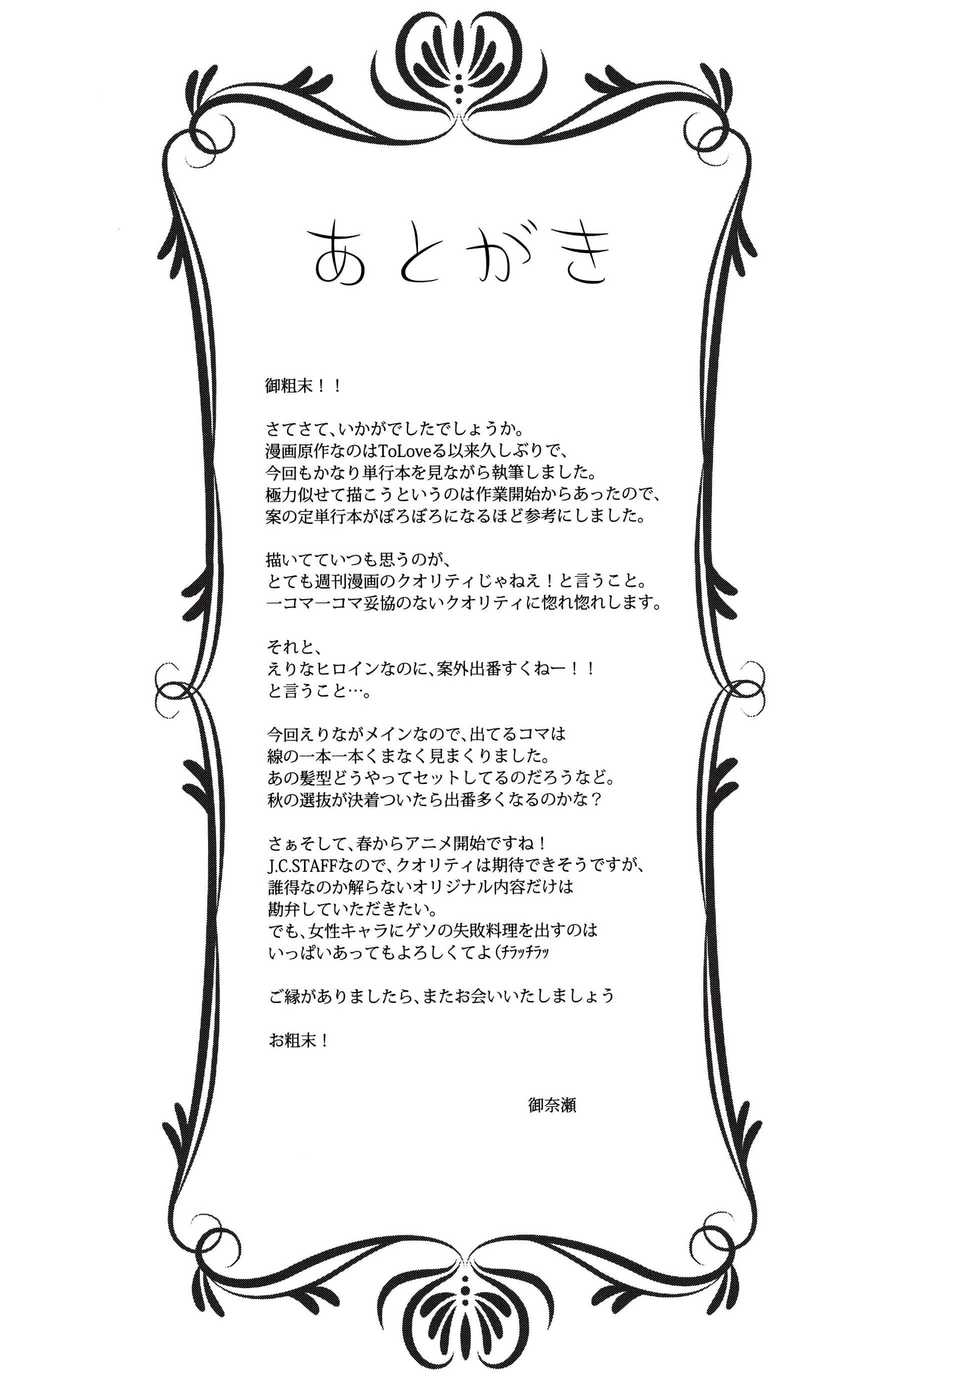 あとがき
御粗末！！
さてさて、いかがでしたでしょうか。
漫画原作なのはToLoveる以来久しぶりで、
今回もかなり単行本を見ながら執筆しました。
極力似せて描こうというのは作業開始からあったので、
案の定単行本がぼろぼろになるほど参考にしました。
描いてていつも思うのが、
とても週刊漫画のクオリティじゃねえ！と言うこと。
一コマ一コマ妥協のないクオリティに惚れ惚れします。
それと、
えりなヒロインなのに、案外出番すくねー！！
と言うこと…。
今回えりながメインなので、出てるコマは
線の一本一本くまなく見まくりました。
あの髪型どうやってセットしてるのだろうなど。
秋の選抜が決着ついたら出番多くなるのかな？
さぁそして、春からアニメ開始ですね！
J.C.STAFFなので、クオリティは期待できそうですが、
誰得なのか解らないオリジナル内容だけは
勘弁していただきたい。
でも、女性キャラにゲソの失敗料理を出すのは
いっぱいあってもよろしくてよ（ﾁﾗｯﾁﾗｯ
ご縁がありましたら、またお会いいたしましょう
お粗末！
御奈瀬